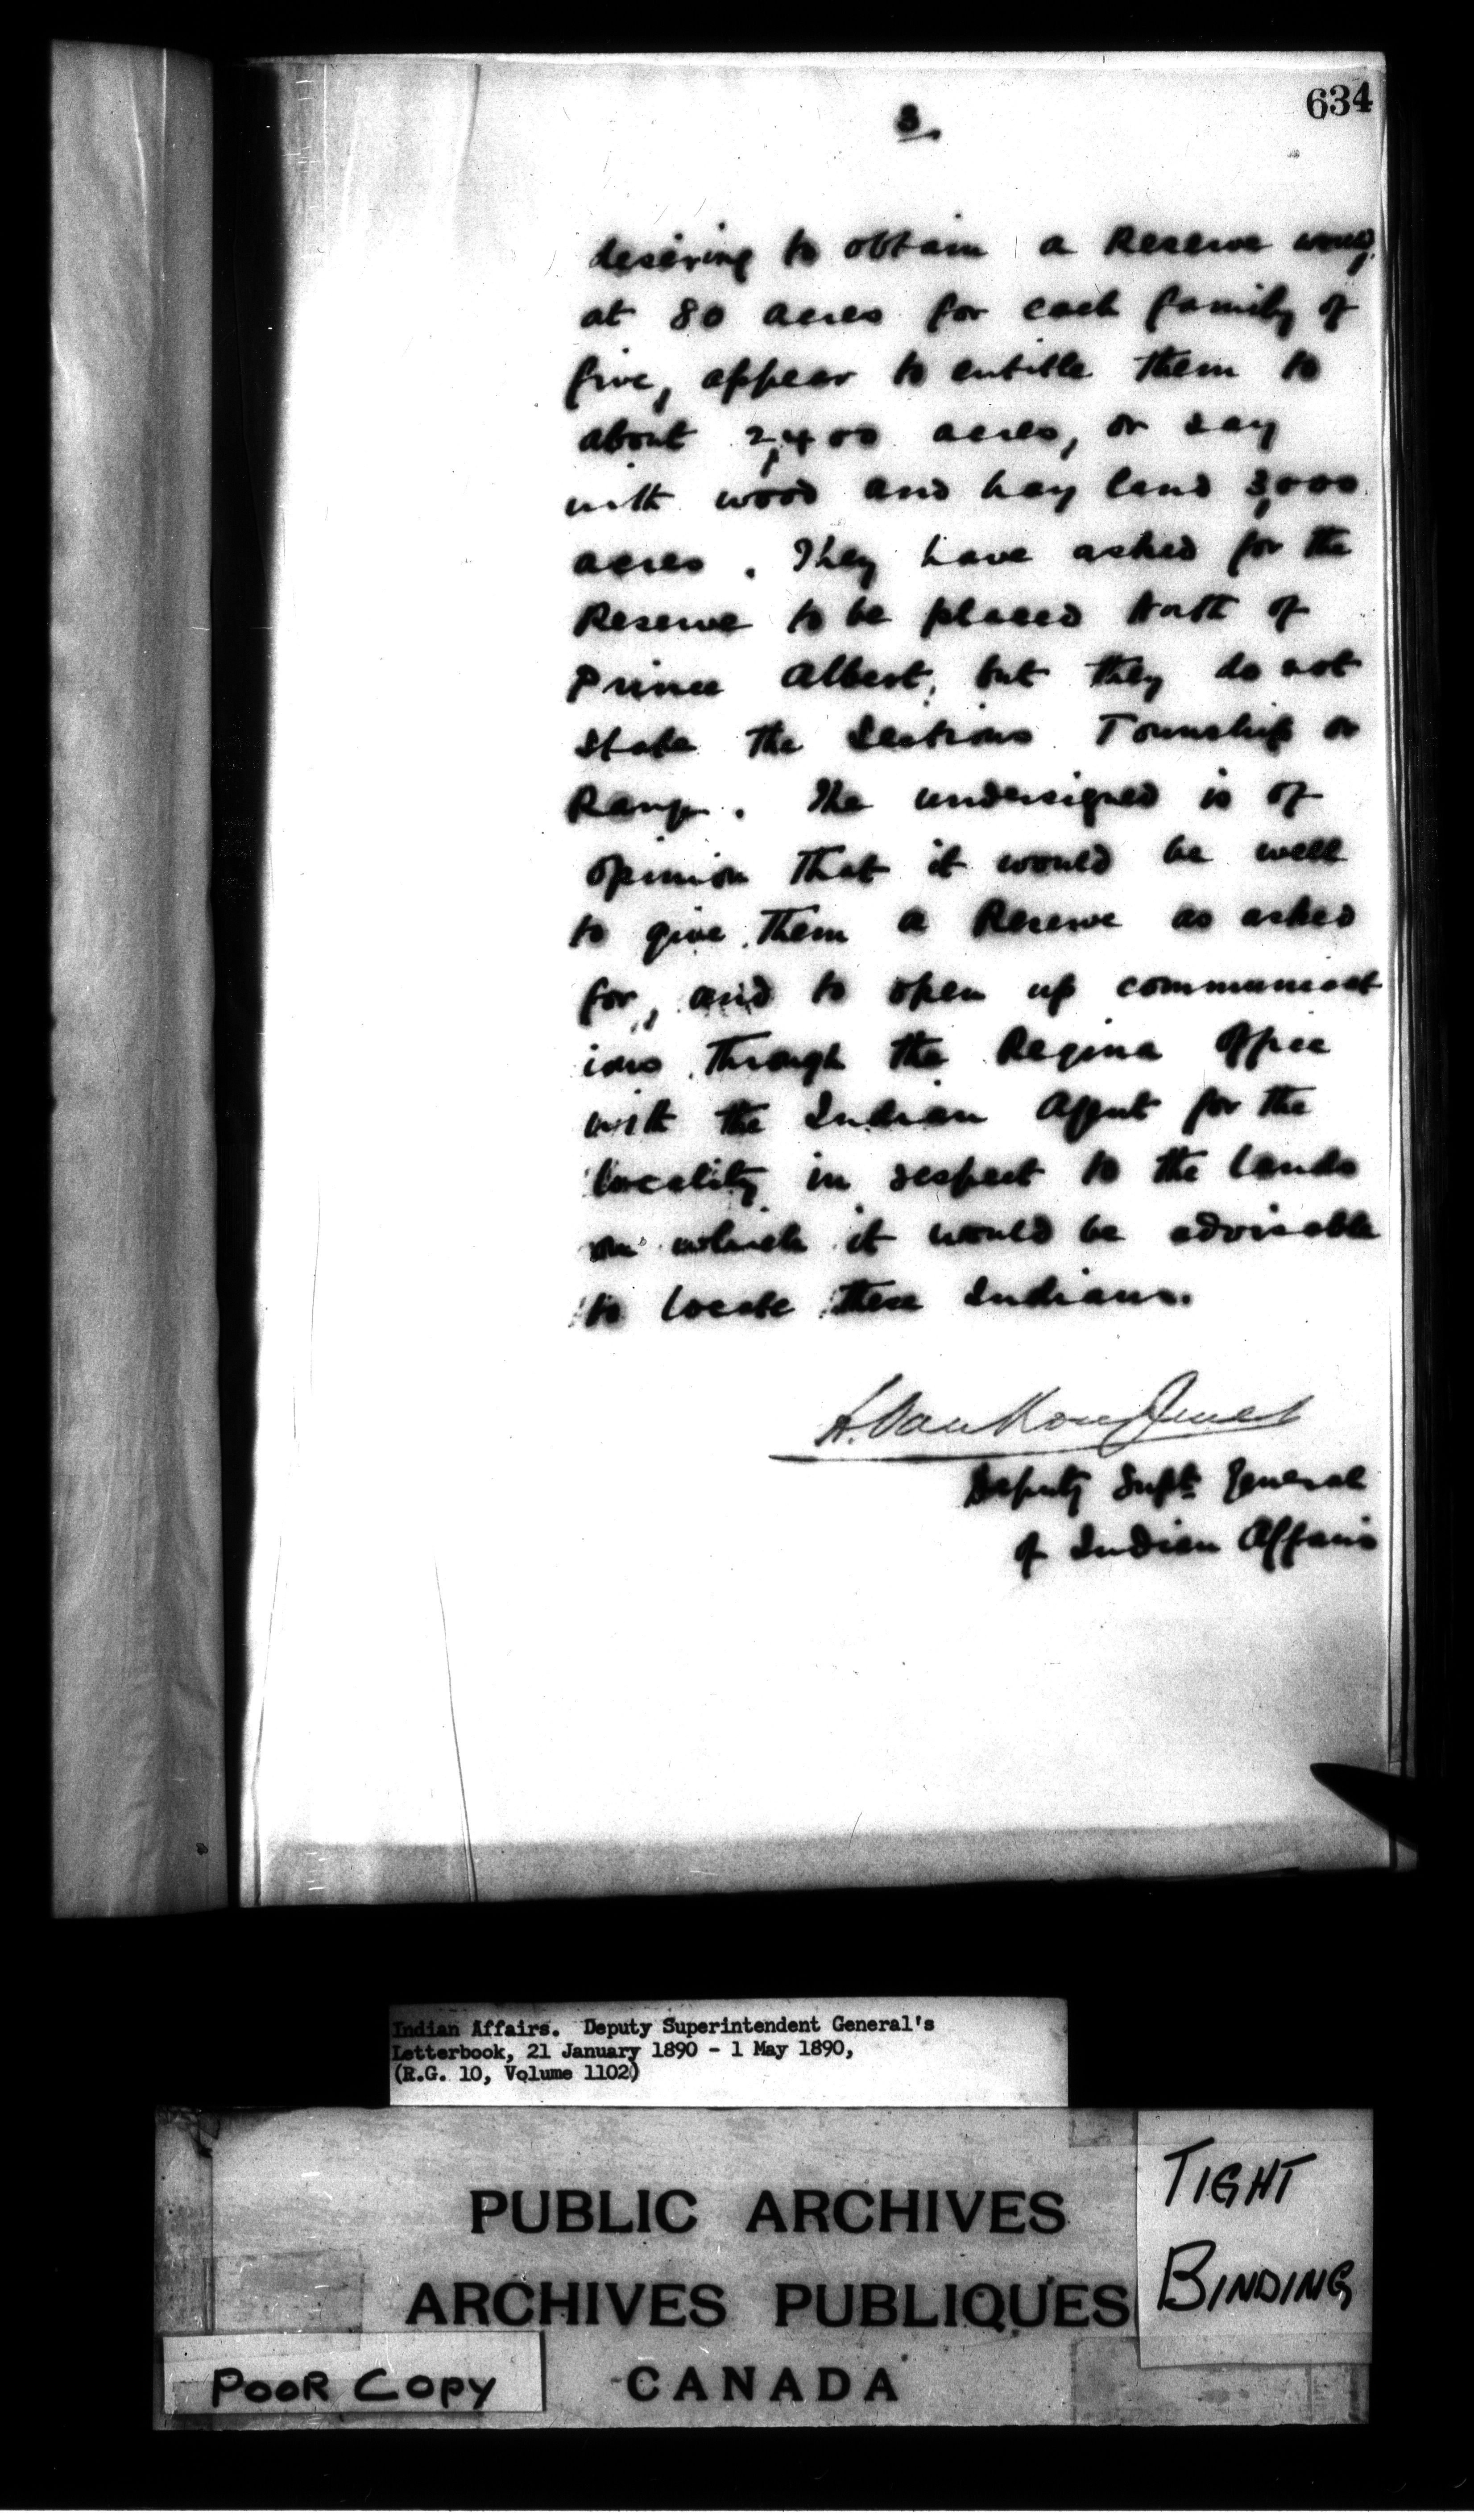 634
3.
desiring to obtain a Reserve would,
at 80 acres for each family of
five, appear to entitle them to
about 2,400 acres, or say
with wood and hay land 3,000
acres. They have asked for the
Reserve to be placed North of
Prince Albert, but they do not
State the Sections Township or
Range. The undersigned is of
opinion that it would be well
to give them a Reserve as asked
for, and to open up communicat
ions through the Regina Office
with the Indian Agent for the
locality in respect to the lands
on which it would be advisable
to locate these Indians.
L. VanKoughnet
Deputy Supt. General
of Indian Affairs
Indian Affairs. Deputy Superintendent General's
Letterbook, 21 January 1890 - 1 May 1890,
(R.G. 10, Volume 1102)
PUBLIC ARCHIVES
ARCHIVES PUBLIQUES
CANADA
TIGHT
BINDING
POOR COPY